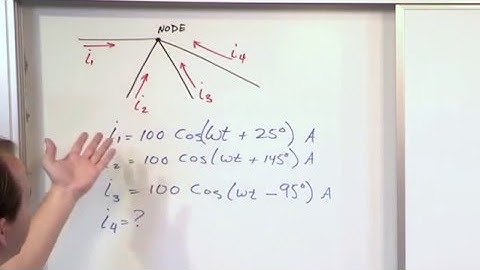 NODE
i1
i4
i2
i3
i1 = 100 Cos(wt + 25°) A
2 = 100 Cos(wt + 145°) A
i3 = 100 Cos(wt - 95°) A
i4 = ?